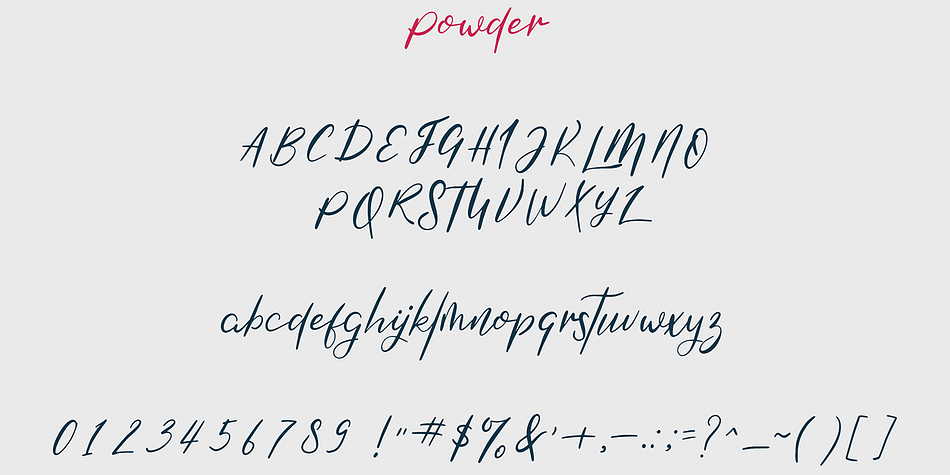 powder
ABCDEFGHIJKLMNO
PQRSTUVWXYZ
abcdefghijklmnopqrstuvwxyz
0123456789 !"#$%&'+,-.:;=?^_~()[]